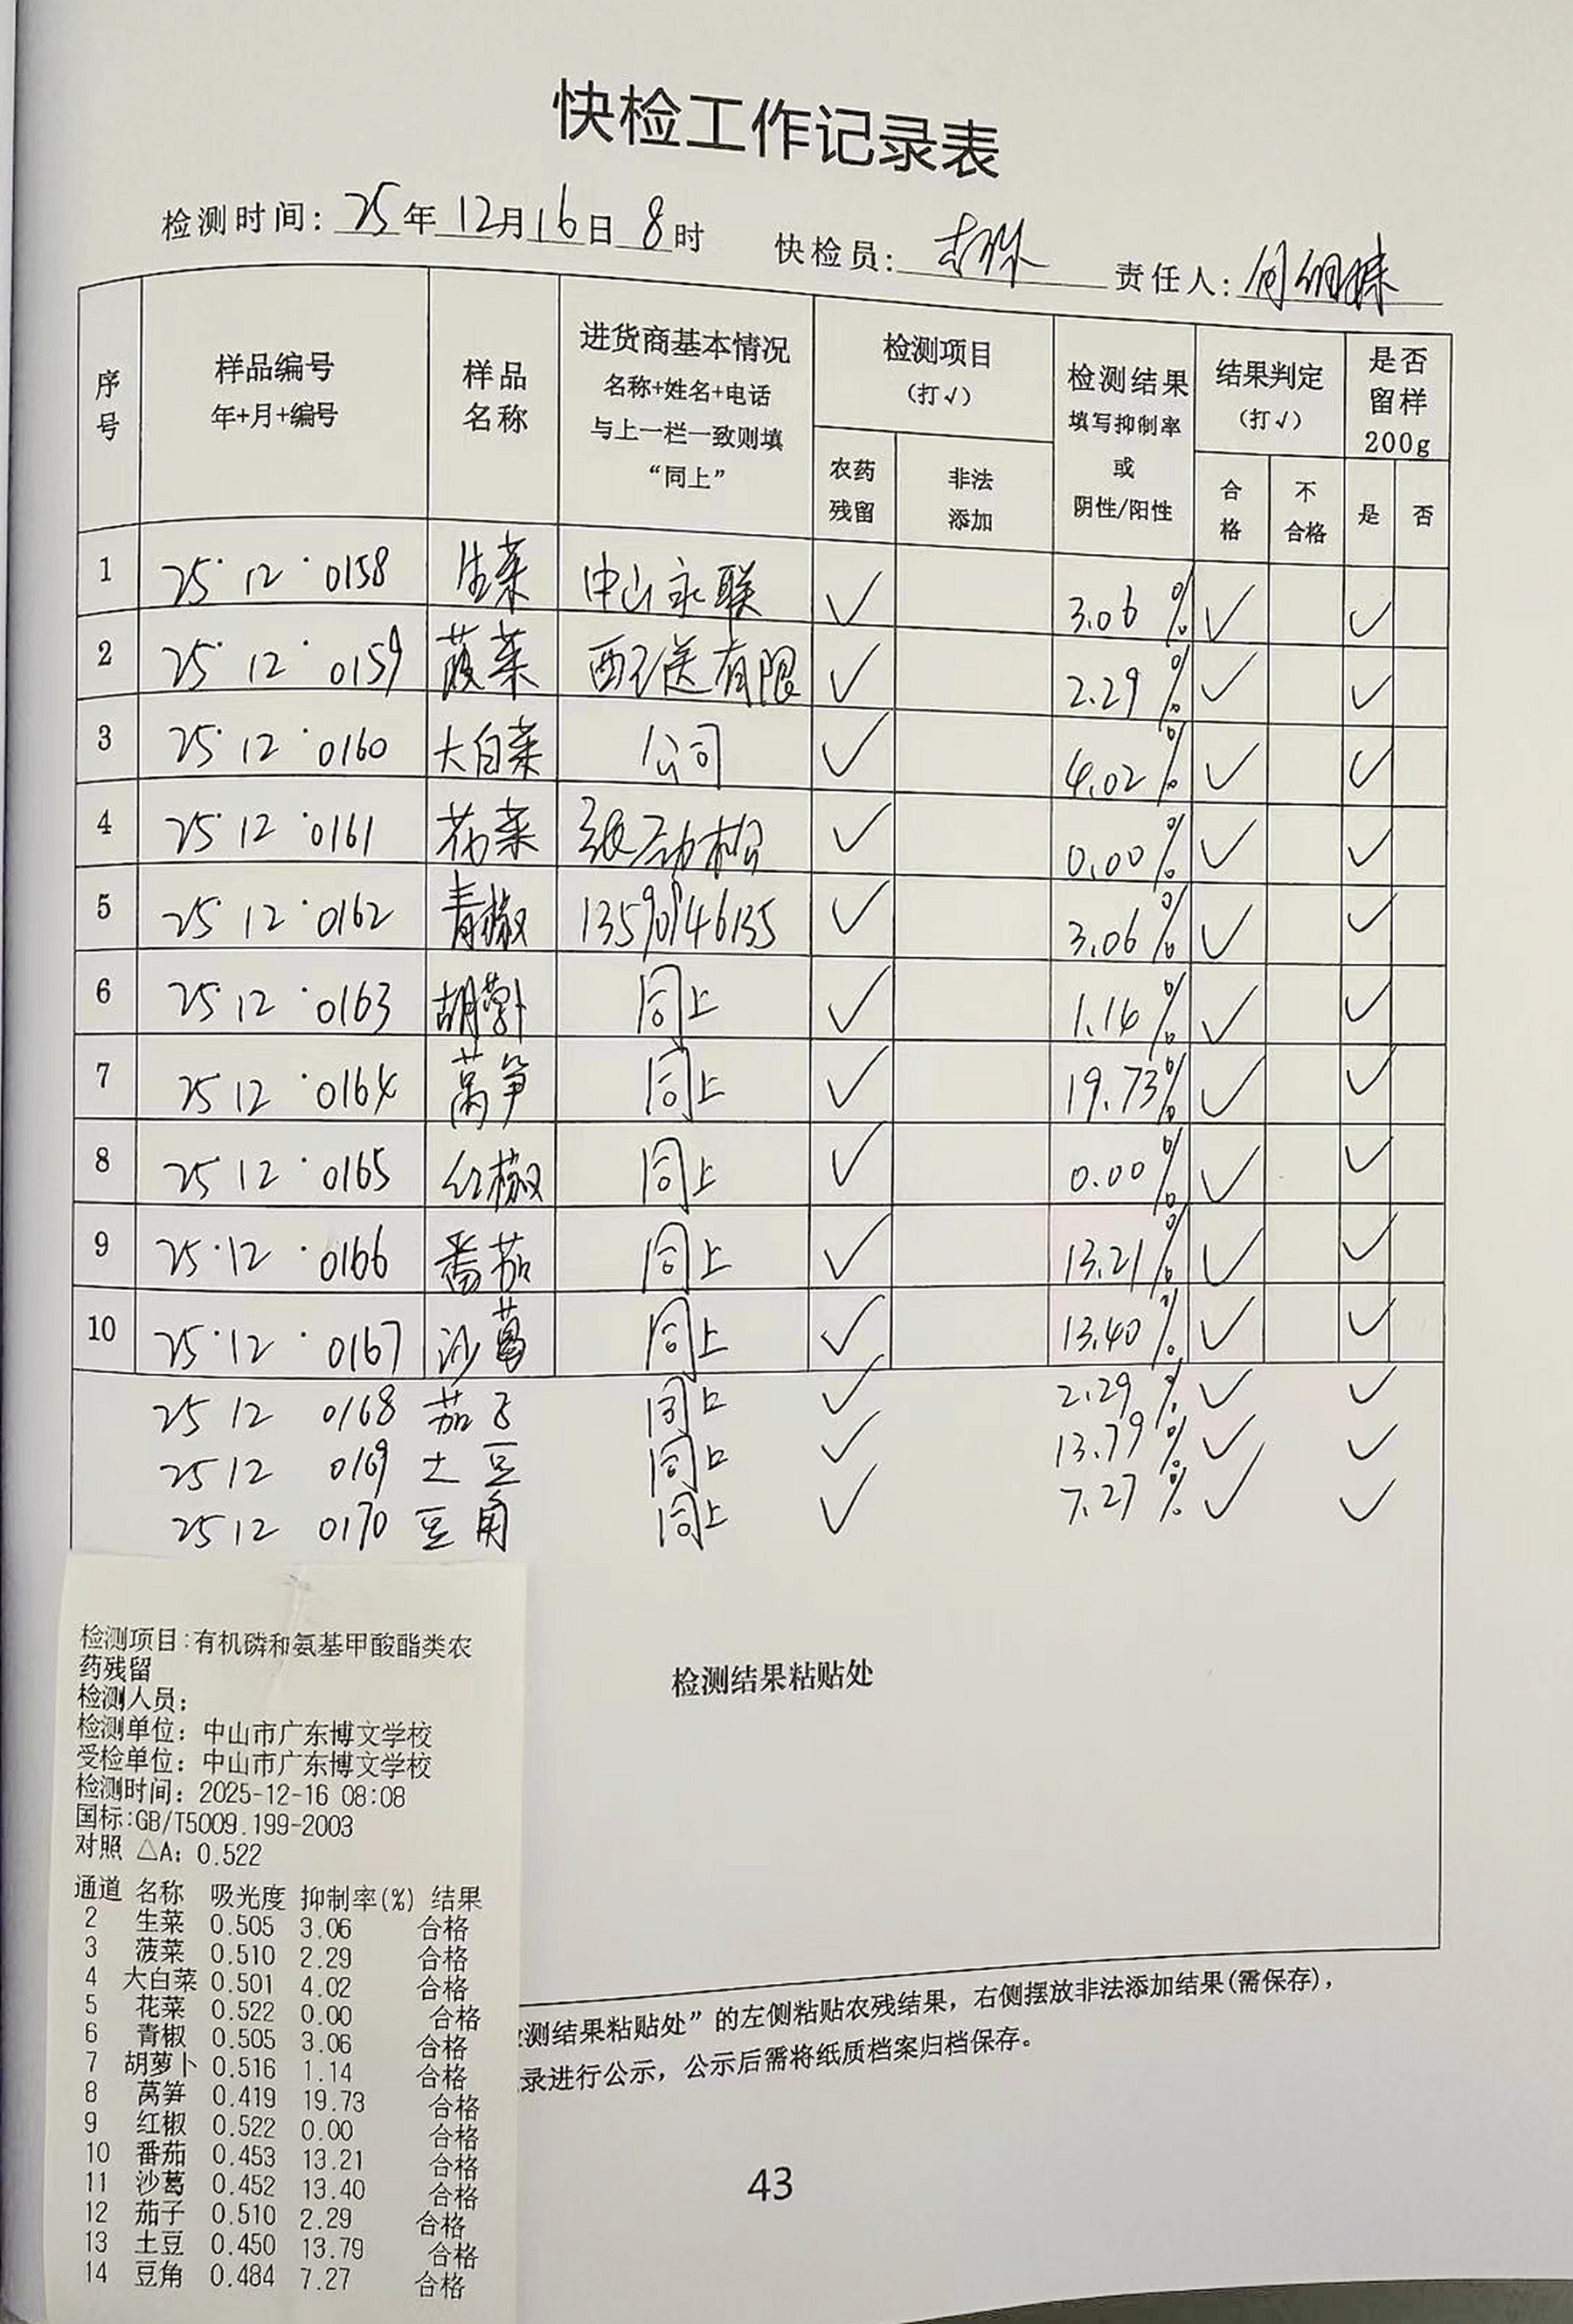 快检工作记录表
检测时间: 25年12月16日8时 快检员: 责任人:
序号 样品编号 年+月+编号 样品名称 进货商基本情况 名称+姓名+电话 与上一栏一致则填“同上” 检测项目 (打√) 农药残留 非法添加 检测结果 填写抑制率 或 阴性/阳性 结果判定 (打√) 合格 不合格 是否留样 200g 是 否
1 25·12·0158 生菜 中山永联 √ 3.06% √ √
2 25·12·0159 菠菜 配送有限 √ 2.29% √ √
3 25·12·0160 大白菜 公司 √ 4.02% √ √
4 25·12·0161 花菜 张劲松 √ 0.00% √ √
5 25·12·0162 青椒 13590946135 √ 3.06% √ √
6 25·12·0163 胡萝卜 同上 √ 1.14% √ √
7 25 12·0164 莴笋 同上 √ 19.73% √ √
8 25 12·0165 红椒 同上 √ 0.00% √ √
9 25·12·0166 番茄 同上 √ 13.21% √ √
10 25·12·0167 沙葛 同上 √ 13.40% √ √
25 12 0168 茄子 同上 √ 2.29% √ √
25 12 0169 土豆 同上 √ 13.79% √ √
25 12 0170 豆角 同上 √ 7.27% √ √
检测结果粘贴处
检测项目:有机磷和氨基甲酸酯类农
药残留
检测人员:
检测单位: 中山市广东博文学校
受检单位: 中山市广东博文学校
检测时间: 2025-12-16 08:08
国标:GB/T5009.199-2003
对照 △A: 0.522
通道 名称 吸光度 抑制率(%) 结果
2 生菜 0.505 3.06 合格
3 菠菜 0.510 2.29 合格
4 大白菜 0.501 4.02 合格
5 花菜 0.522 0.00 合格
6 青椒 0.505 3.06 合格
7 胡萝卜 0.516 1.14 合格
8 莴笋 0.419 19.73 合格
9 红椒 0.522 0.00 合格
10 番茄 0.453 13.21 合格
11 沙葛 0.452 13.40 合格
12 茄子 0.510 2.29 合格
13 土豆 0.450 13.79 合格
14 豆角 0.484 7.27 合格
测结果粘贴处”的左侧粘贴农残结果，右侧摆放非法添加结果(需保存)，
录进行公示，公示后需将纸质档案归档保存。
43